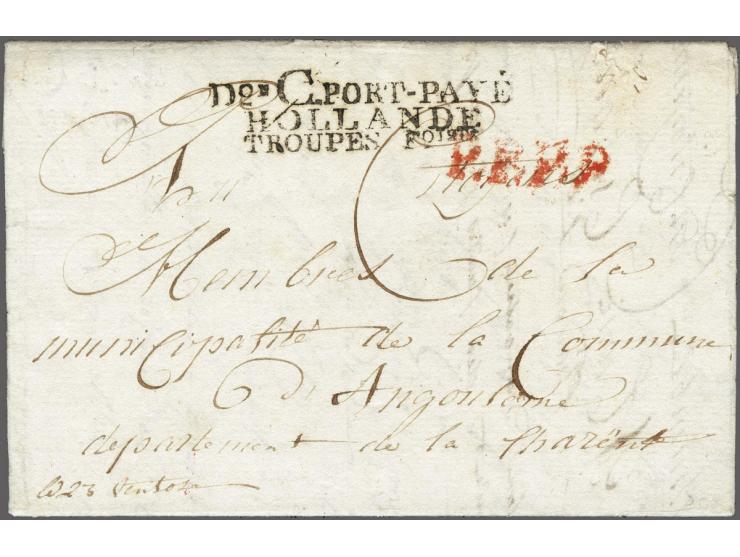 Don C. PORT-PAYÉ
HOLLANDE
TROUPES
P.P.P.P
Citoyens
Membres de la
municipalité de la Commune
D'Angoulême
département de la Charente
23 ventose